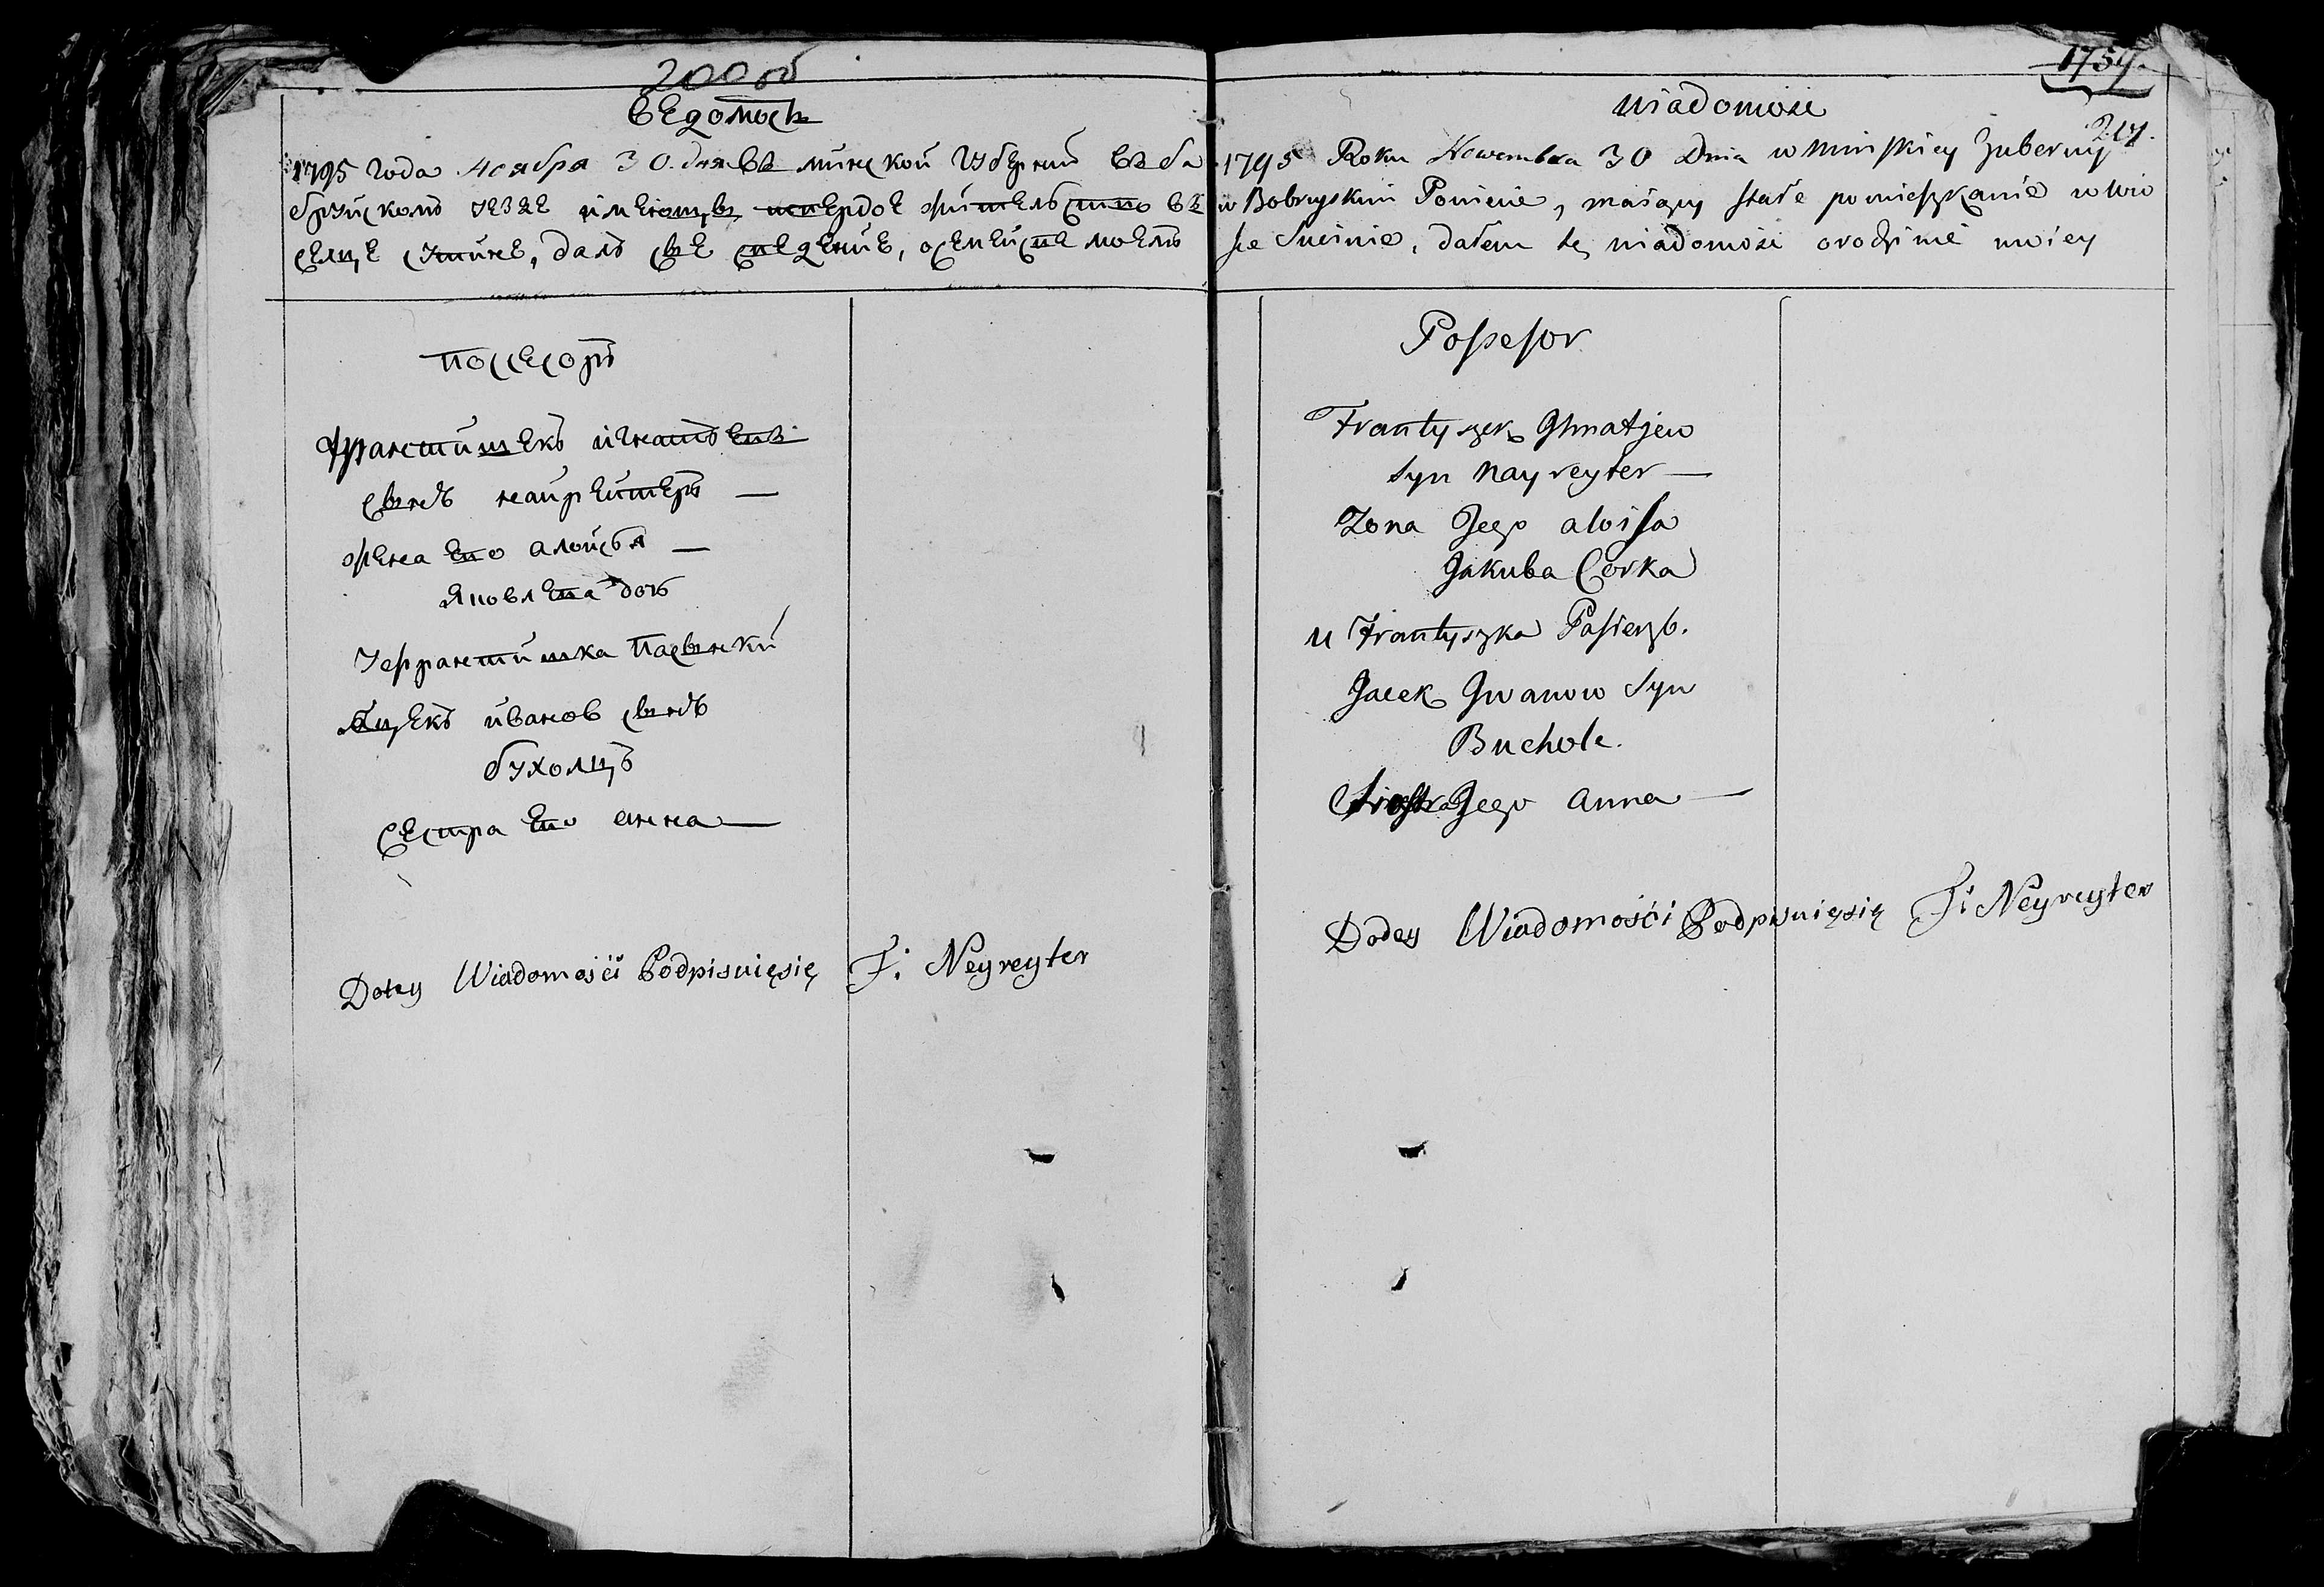 200 об
ведомость
1795 года ноября 30. дня въ минской губернии въ бо
бруйскомъ уезде имеющы твердое жительство въ
селце устине, далъ сие сведение, о семействе моемъ
поссесоръ
Франстишекъ игнатьевъ
сынъ найрейтеръ —
жена его алойзя —
яковлева дочь
У Франстишка пасынки
Яцекъ иванов сынъ
бухолцъ
Сестра его анна —
Dotey Wiadomości Podpisuięsię F: Neyreyter
1757.
217.
wiadomosc
1795 Roku Nowembra 30 Dnia w Minskiey Guberniy
w Bobruyskim Powiecie, maiący stałe pomieszkanie w wio
sce Sucinie, dałem tę wiadomosc o rodzinie moiey
Possesor
Frantyszek Ghnatjew
syn Nayreyter —
Zona Jego aloisa
Jakuba Corka
u Frantyszka Pasierzb.
Jacek Jwanow Syn
Bucholc.
Siostra Jego Anna —
Dodey Wiadomości Podpisuięsię F: Neyreyter